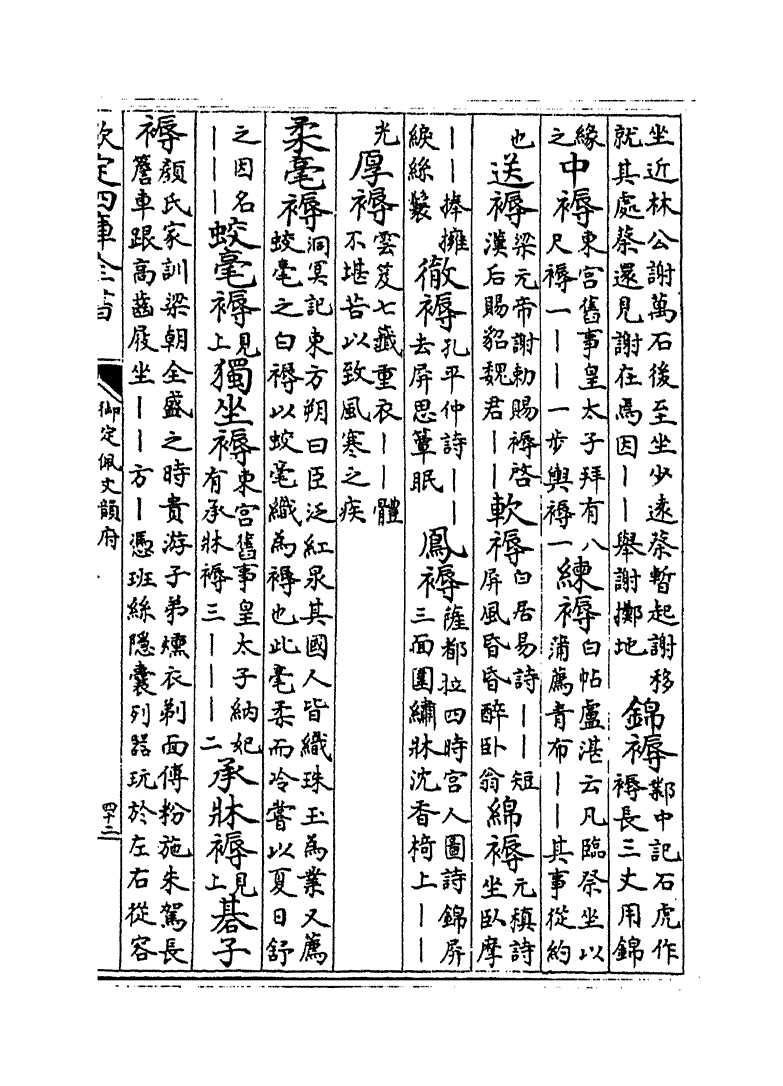 坐近林公謝萬石後至坐少遠蔡暫起謝移
就其處蔡還見謝在焉因｜｜舉謝擲地
錦褥
鄴中記石虎作
褥長三丈用錦
緣
之
中褥
東宫舊事皇太子拜有八
尺褥一｜｜｜一步輿褥一
練褥
白帖盧湛云凡臨祭坐以
蒲薦青布｜｜其事從約
也
送褥
梁元帝謝勑賜褥啓
漢后賜貂魏君｜｜
軟褥
白居易詩｜｜短
屏風昏昏醉卧翁
綿褥
元稹詩
坐卧摩
｜｜捧擁
綟絲鬉
徹褥
孔平仲詩｜｜
去屏思蕈眠
鳳褥
薩都拉四時宫人圖詩錦屏
三面圍繡牀沈香椅上｜｜
光
厚褥
雲笈七籤重衣｜｜體
不堪苦以致風寒之疾
柔毫褥
洞冥記東方朔曰臣泛紅泉其國人皆織珠玉為業又薦
蛟毫之白褥以蛟毫織為褥也此毫柔而冷嘗以夏日舒
之因名
｜｜｜
蛟毫褥
見
上
獨坐褥
東宫舊事皇太子納妃
有承牀褥三｜｜｜二
承牀褥
見
上
棊子
褥
顏氏家訓梁朝全盛之時貴游子弟燻衣剃面傅粉施朱駕長
簷車跟高齒屐坐｜｜方｜憑班絲隱囊列器玩於左右從容
欽定四庫全書
御定佩文韻府
四十二